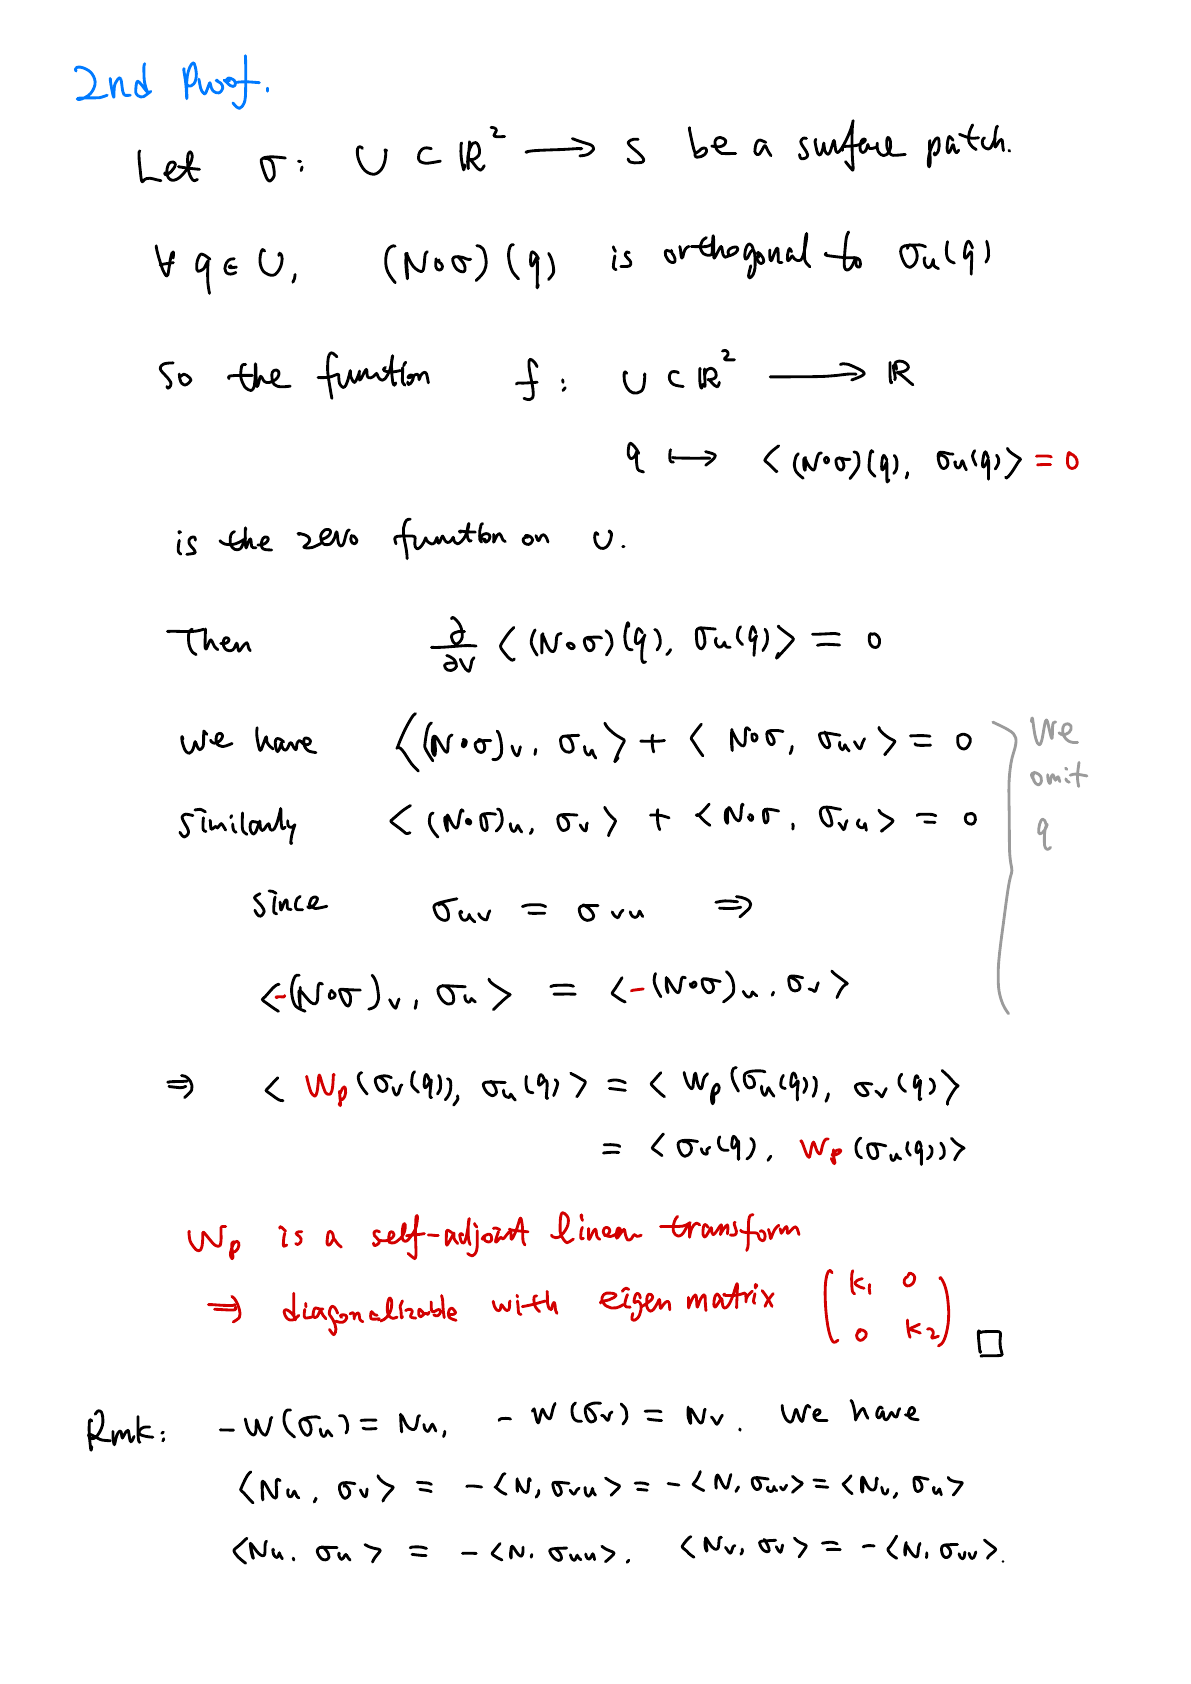 2nd Proof.
Let σ: U ⊂ ℝ² ⟶ S be a surface patch.
∀ q ∈ U, (N∘σ)(q) is orthogonal to σu(q)
So the function f: U ⊂ ℝ² ⟶ ℝ
q ⟼ <(N∘σ)(q), σu(q)> = 0
is the zero function on U.
Then ∂/∂v <(N∘σ)(q), σu(q)> = 0
we have <(N∘σ)v, σu> + <N∘σ, σuv> = 0
similarly <(N∘σ)u, σv> + <N∘σ, σvu> = 0
We
omit
q
since σuv = σvu ⇒
<-(N∘σ)v, σu> = <-(N∘σ)u, σv>
⇒ <Wp(σv(q)), σu(q)> = <Wp(σu(q)), σv(q)>
= <σv(q), Wp(σu(q))>
Wp is a self-adjoint linear transform
⇒ diagonalizable with eigen matrix (k1 0
0 k2) □
Rmk: -W(σu) = Nu, -W(σv) = Nv. We have
<Nu, σv> = -<N, σvu> = -<N, σuv> = <Nv, σu>
<Nu, σu> = -<N, σuu>. <Nv, σv> = -<N, σvv>.